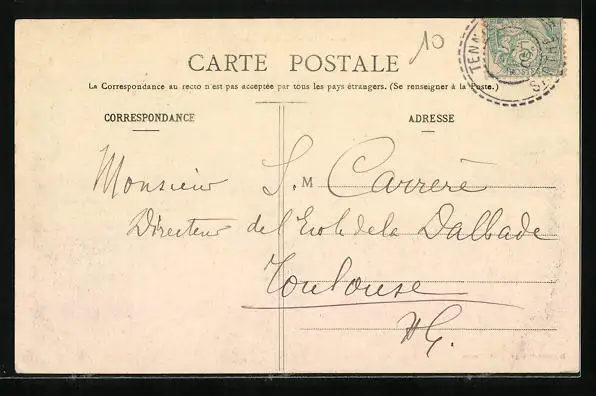 10
CARTE POSTALE
La Correspondance au recto n'est pas acceptée par tous les pays étrangers. (Se renseigner à la Poste.)
CORRESPONDANCE
ADRESSE
Monsieur S. M Carrère
Directeur de l'Ecole de la Dalbade
Toulouse
HG.